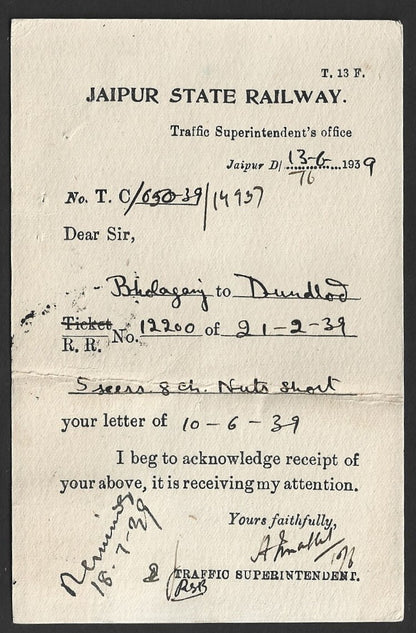 T. 13 F.
JAIPUR STATE RAILWAY.
Traffic Superintendent's office
Jaipur D/ 13-6- 1939
16
No. T. C/650-39/14957
Dear Sir,
Bholaganj to Dundlod
Ticket
R. R. No. 12200 of 21-2-39
5 seers 8 ch. Nuts short
your letter of 10-6-39
I beg to acknowledge receipt of
your above, it is receiving my attention.
Yours faithfully,
TRAFFIC SUPERINTENDENT.
18-7-39